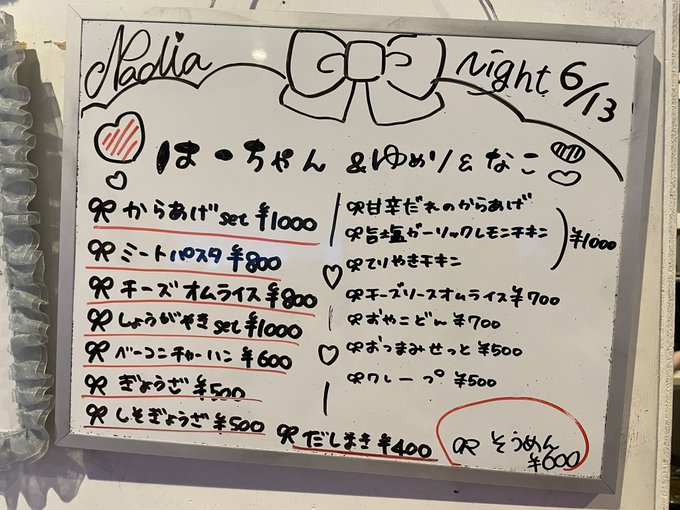 Nadia
Night 6/13
はーちゃん &ゆめり&なこ
からあげset ¥1000
ミートパスタ ¥800
チーズオムライス ¥800
しょうがやきset ¥1000
ベーコンチャーハン ¥600
ぎょうざ ¥500
しそぎょうざ ¥500
だしまき ¥400
甘辛だれのからあげ
旨塩ガーリックレモンチキン
てりやきチキン
¥1000
チーズソースオムライス ¥700
おやこどん ¥700
おつまみせっと ¥500
クレープ ¥500
そうめん
¥600